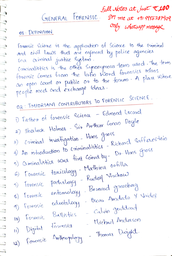 GENERAL FORENSIC
Full Notes at just ₹100
only whatsapp message
Q1. DEFINATION
Forensic Science is the application of Science to the criminal
and civil laws that are enforced by police agencies
in a criminal justice system.
Criminalistics is the other synonymous term word. The term
forensic comes from the latin word forensis means
an open court or public or to the forum. A place where
people meet and exchange ideas.
Q2. THOUSAND CONTRIBUTORS TO FORENSIC SCIENCE
1) Father of forensic Science - Edmond Locard
2) Sherlock Holmes - Sir Arthur Conan Doyle
3) Criminal Investigation - Hans Gross
4) An introduction to Criminalistics - Richard Saferstein
5) Criminalistics was first coined by - Dr Hans Gross
6) Forensic toxicology - Mathieu Orfilla
7) Forensic pathology - Rudolf Virchow
8) Forensic entomology - Bergeret
9) Forensic odontology - Oscar Amoedo
10) Forensic Ballistics - Calvin Goddard
11) Digital Forensics - Anderson
12) Forensic Anthropology - Thomas Dwight